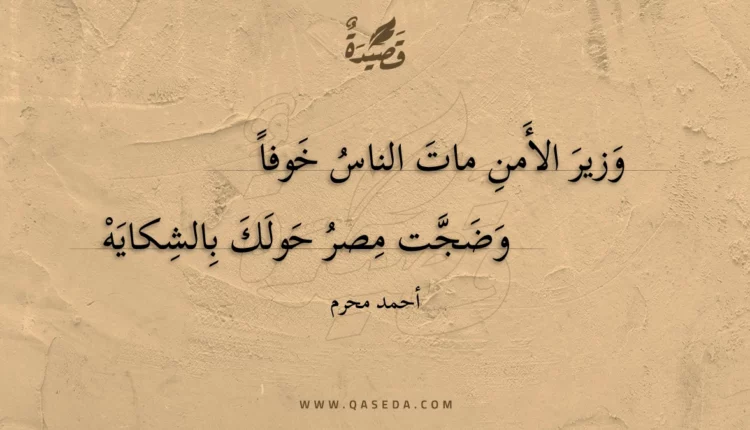 قَصِيدَةٌ
وَزيرَ الأَمنِ ماتَ الناسُ خَوفاً
وَضَجَّت مِصرُ حَولَكَ بِالشِكايَهْ
أحمد محرم
WWW.QASEDA.COM